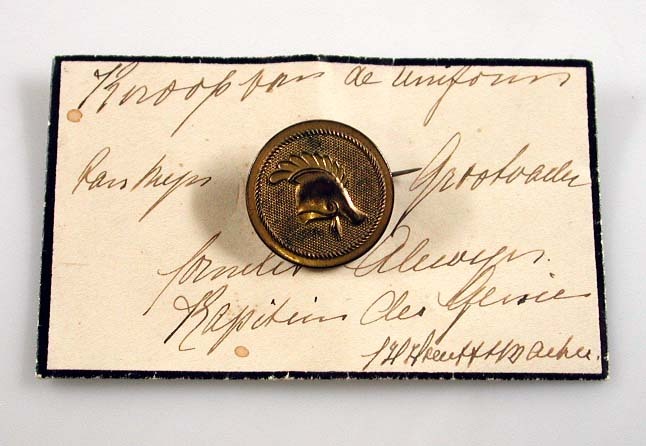 Knoop van de uniform
van mijn Grootvader
Cornelis Alewijn
Kapitein der Genie